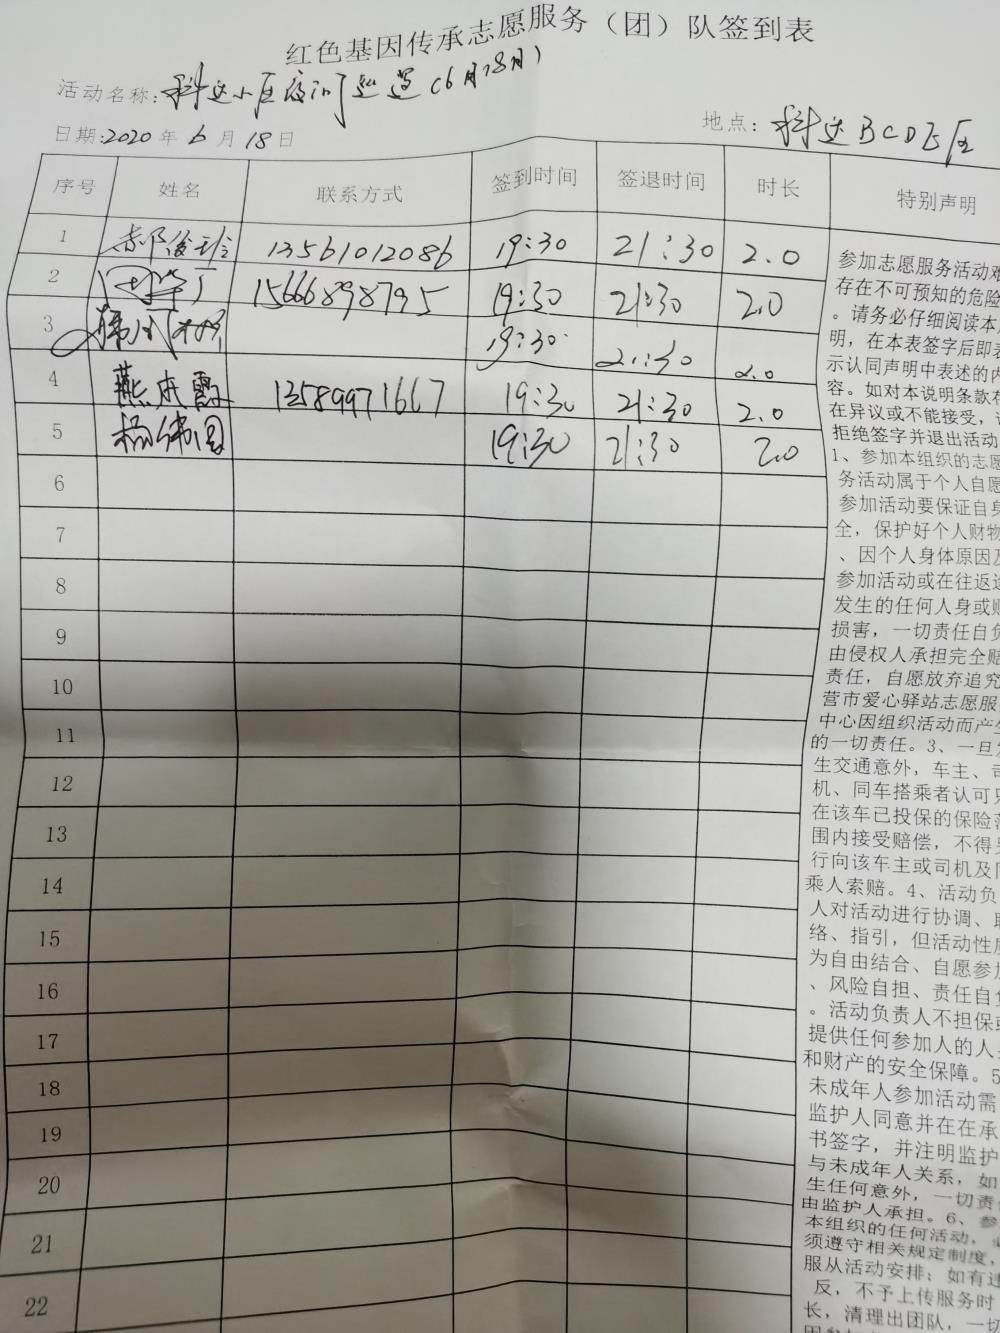 红色基因传承志愿服务（团）队签到表
活动名称：科达小区夜间巡逻（6月18日）
日期：2020年6月18日 地点：科达BCDE区
序号 姓名 联系方式 签到时间 签退时间 时长 特别声明
1 郝俊玲 13561012086 19:30 21:30 2.0
2 15666898795 19:30 21:30 2.0
3 19:30 21:30 2.0
4 燕成霞 13589971667 19:30 21:30 2.0
5 杨伟国 19:30 21:30 2.0
6
7
8
9
10
11
12
13
14
15
16
17
18
19
20
21
22
参加志愿服务活动难
存在不可预知的危险
。请务必仔细阅读本
明，在本表签字后即表
示认同声明中表述的内
容。如对本说明条款存
在异议或不能接受，
拒绝签字并退出活动
1、参加本组织的志愿
务活动属于个人自愿
参加活动要保证自身
全，保护好个人财物
、因个人身体原因及
参加活动或在往返途
发生的任何人身或财
损害，一切责任自负
由侵权人承担完全赔
责任，自愿放弃追究
营市爱心驿站志愿服
中心因组织活动而产生
的一切责任。3、一旦发
生交通意外，车主、司
机、同车搭乘者认可只
在该车已投保的保险范
围内接受赔偿，不得另
行向该车主或司机及同
乘人索赔。4、活动负
人对活动进行协调、联
络、指引，但活动性质
为自由结合、自愿参加
、风险自担、责任自负
。活动负责人不担保或
提供任何参加人的人身
和财产的安全保障。5
未成年人参加活动需
监护人同意并在在承
书签字，并注明监护
与未成年人关系，如
生任何意外，一切责任
由监护人承担。6、参
本组织的任何活动，必
须遵守相关规定制度，
服从活动安排；如有违
反，不予上传服务时
长，清理出团队，一切